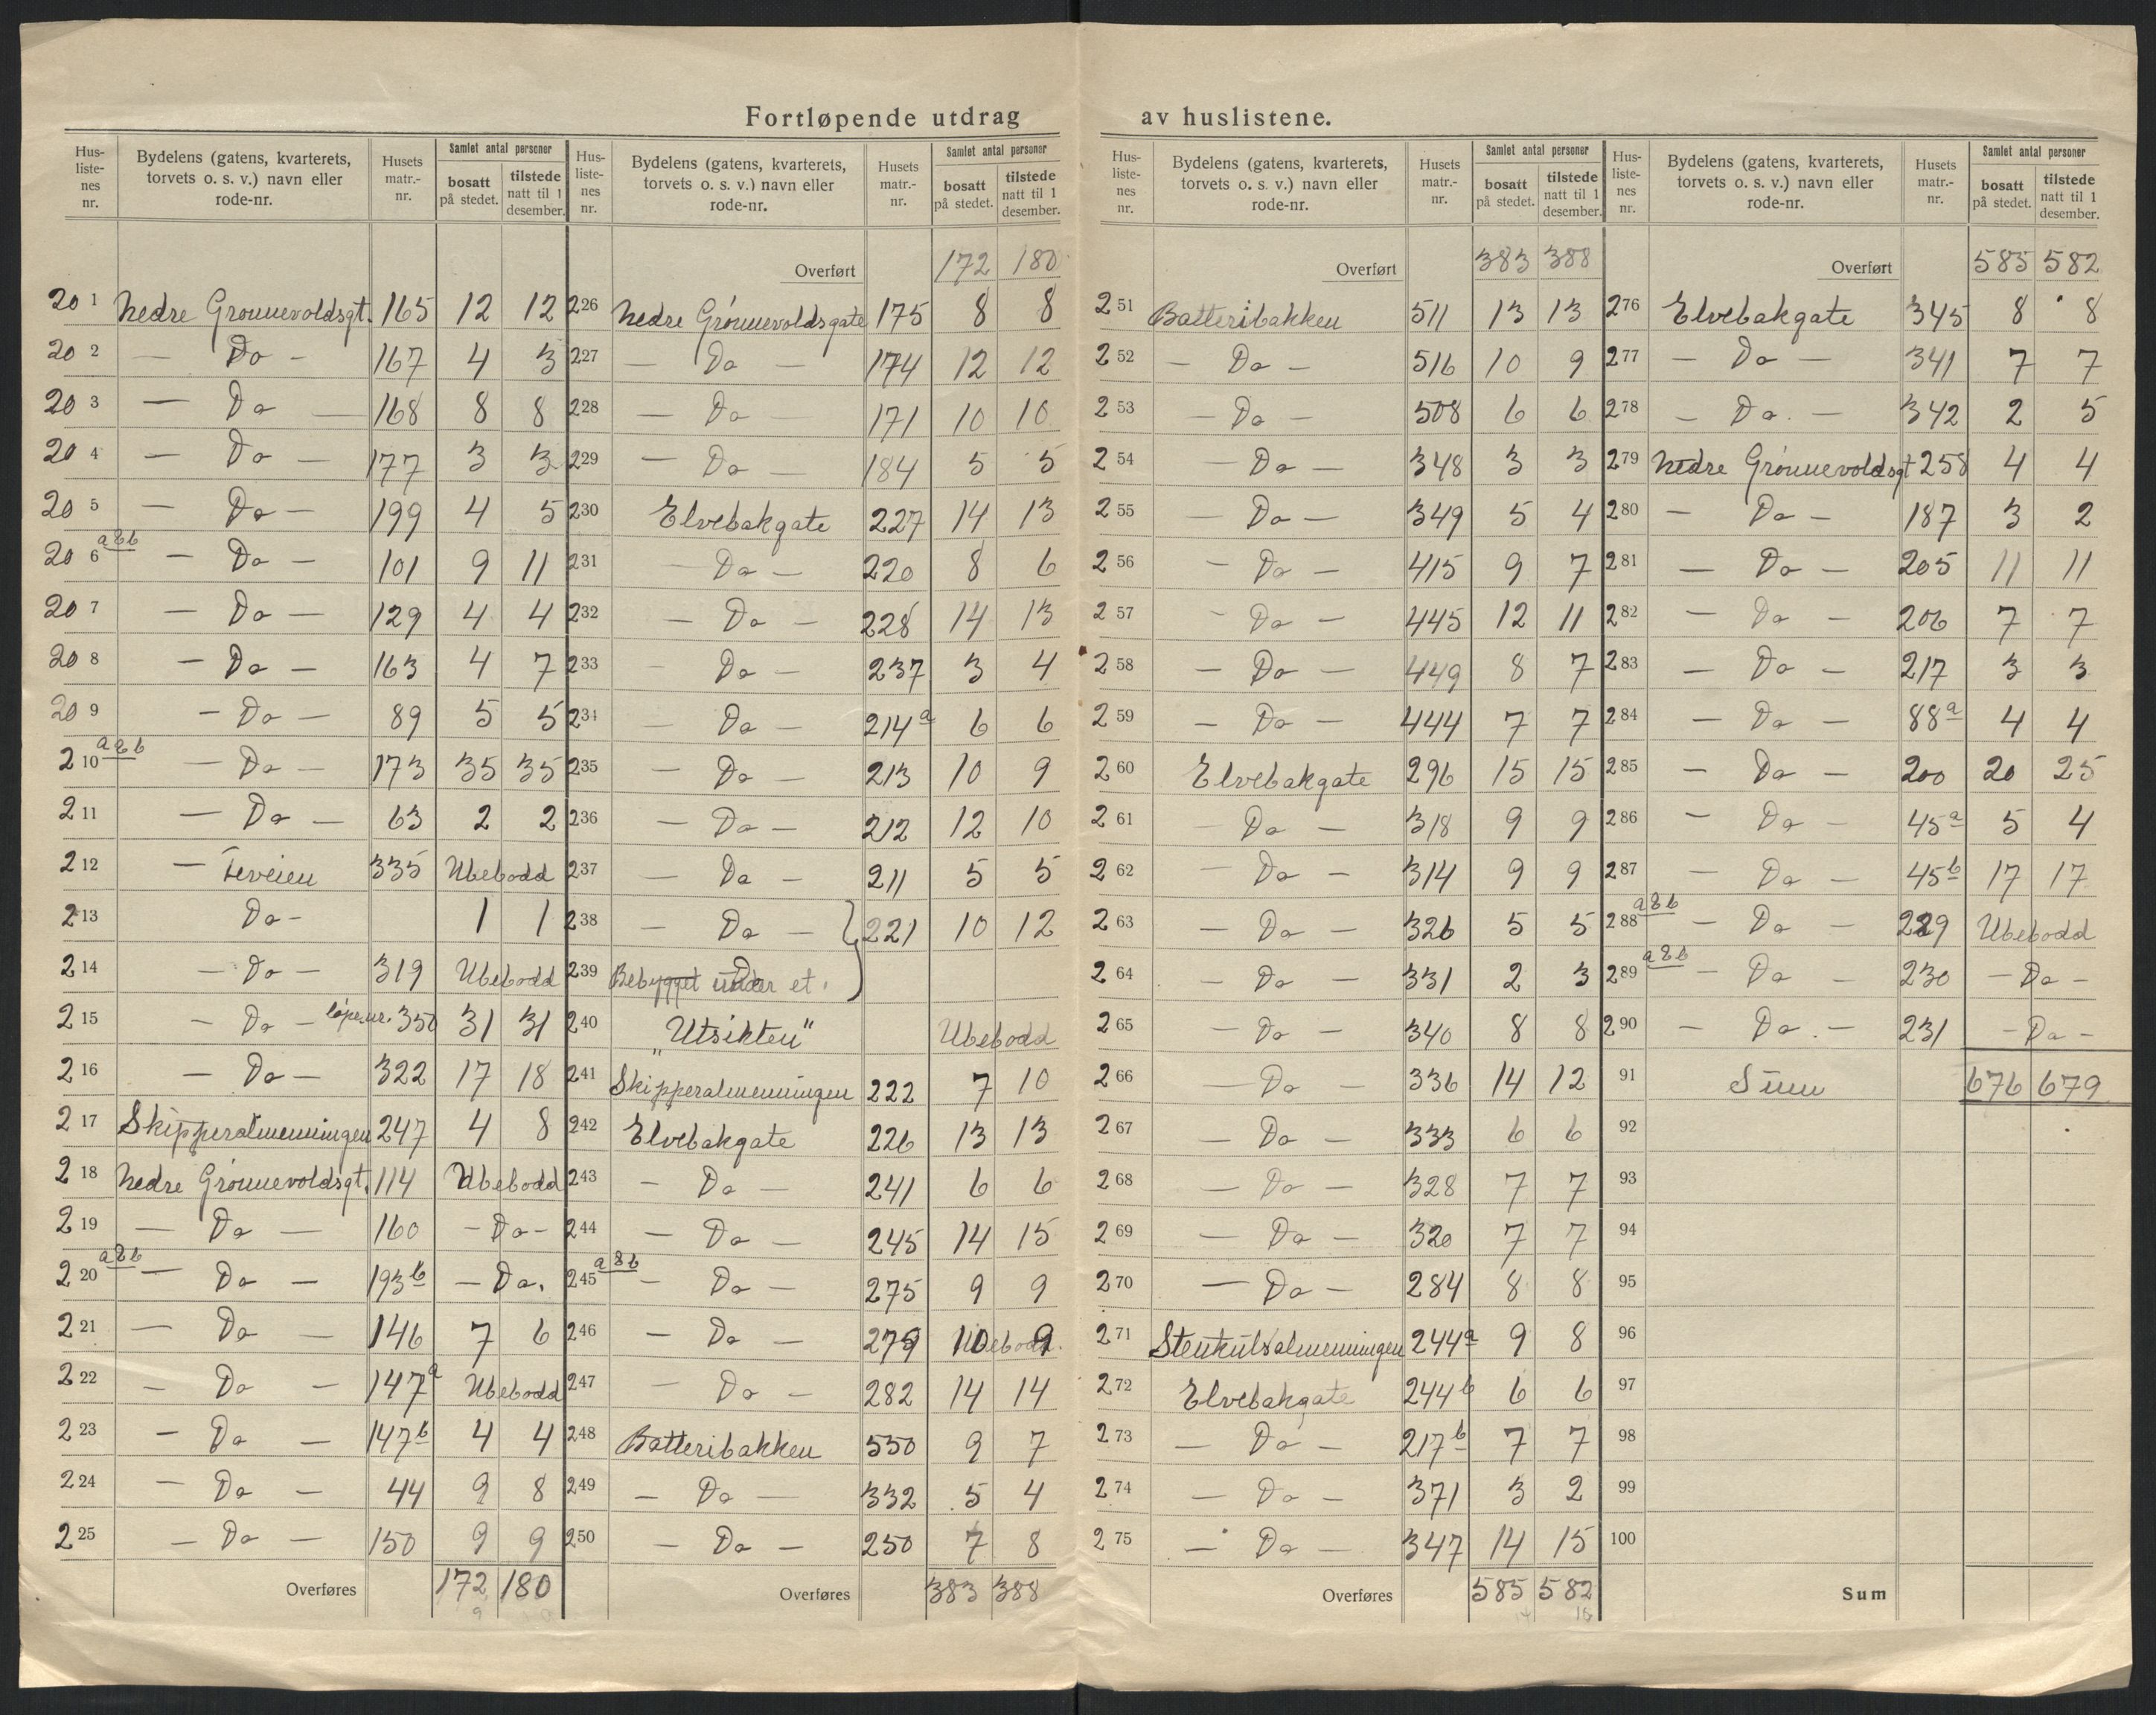 Fortløpende utdrag av huslistene.
Hus-liste-nes nr. | Bydelens (gatens, kvarterets, torvets o. s. v.) navn eller rode-nr. | Husets matr.-nr. | Samlet antal personer | bosatt på stedet. | tilstede natt til 1 desember.
201 Nedre Grønnevoldsgt. 165 12 12
202 — Do — 167 4 3
203 — Do — 168 8 8
204 — Do — 177 3 3
205 — Do — 199 4 5
206 a & b — Do — 101 9 11
207 — Do — 129 4 4
208 — Do — 163 4 7
209 — Do — 89 5 5
210 a & b — Do — 173 35 35
211 — Do — 63 2 2
212 — Feveien 335 Ubebodd
213 Do — 1 1
214 — Do — 319 Ubebodd
215 — Do — løpe.nr. 350 31 31
216 — Do — 322 17 18
217 Skipperalmenningen 247 4 8
218 Nedre Grønnevoldsgt. 114 Ubebodd
219 — Do — 160 — Do —
220 a & b — Do — 193b — Do.
221 — Do — 146 7 6
222 — Do — 147a Ubebodd
223 — Do — 147b 4 4
224 — Do — 44 9 8
225 — Do — 150 9 9
Overføres 172 180
Hus-liste-nes nr. | Bydelens (gatens, kvarterets, torvets o. s. v.) navn eller rode-nr. | Husets matr.-nr. | Samlet antal personer | bosatt på stedet. | tilstede natt til 1 desember.
Overført 172 180
226 Nedre Grønnevoldsgate 175 8 8
227 — Do — 174 12 12
228 — Do — 171 10 10
229 — Do — 184 5 5
230 Elvebakgate 227 14 13
231 — Do — 220 8 6
232 — Do — 228 14 13
233 — Do — 237 3 4
234 — Do — 214a 6 6
235 — Do — 213 10 9
236 — Do — 212 12 10
237 — Do — 211 5 5
238 — Do — 221 10 12
239 Do Bebygget under et.
240 "Utsikten" Ubebodd
241 Skipperalmenningen 222 7 10
242 Elvebakgate 226 13 13
243 — Do — 241 6 6
244 — Do — 245 14 15
245 a & b — Do — 275 9 9
246 — Do — 279 10 9
247 — Do — 282 14 14
248 Batteribakken 550 9 7
249 — Do — 332 5 4
250 — Do — 250 7 8
Overføres 383 388
Hus-liste-nes nr. | Bydelens (gatens, kvarterets, torvets o. s. v.) navn eller rode-nr. | Husets matr.-nr. | Samlet antal personer | bosatt på stedet. | tilstede natt til 1 desember.
Overført 383 388
251 Batteribakken 511 13 13
252 — Do — 516 10 9
253 — Do — 508 6 6
254 — Do — 348 3 3
255 — Do — 349 5 4
256 — Do — 415 9 7
257 — Do — 445 12 11
258 — Do — 449 8 7
259 — Do — 444 7 7
260 Elvebakgate 296 15 15
261 — Do — 318 9 9
262 — Do — 314 9 9
263 — Do — 326 5 5
264 — Do — 331 2 3
265 — Do — 340 8 8
266 — Do — 336 14 12
267 — Do — 333 6 6
268 — Do — 328 7 7
269 — Do — 320 7 7
270 — Do — 284 8 8
271 Stenkulsalmenningen 244a 9 8
272 Elvebakgate 244b 6 6
273 — Do — 217b 7 7
274 — Do — 371 3 2
275 — Do — 347 14 15
Overføres 585 582
Hus-liste-nes nr. | Bydelens (gatens, kvarterets, torvets o. s. v.) navn eller rode-nr. | Husets matr.-nr. | Samlet antal personer | bosatt på stedet. | tilstede natt til 1 desember.
Overført 585 582
276 Elvebakgate 345 8 8
277 — Do — 341 7 7
278 — Do. — 342 2 5
279 Nedre Grønnevoldsgt 258 4 4
280 — Do — 187 3 2
281 — Do — 205 11 11
282 — Do — 206 7 7
283 — Do — 217 3 3
284 — Do — 88a 4 4
285 — Do — 200 20 25
286 — Do — 45a 5 4
287 — Do — 45b 17 17
288 a & b — Do — 229 Ubebodd
289 a & b — Do — 230 — Do —
290 — Do. — 231 — Do —
91 Sum 676 679
92
93
94
95
96
97
98
99
100
Sum